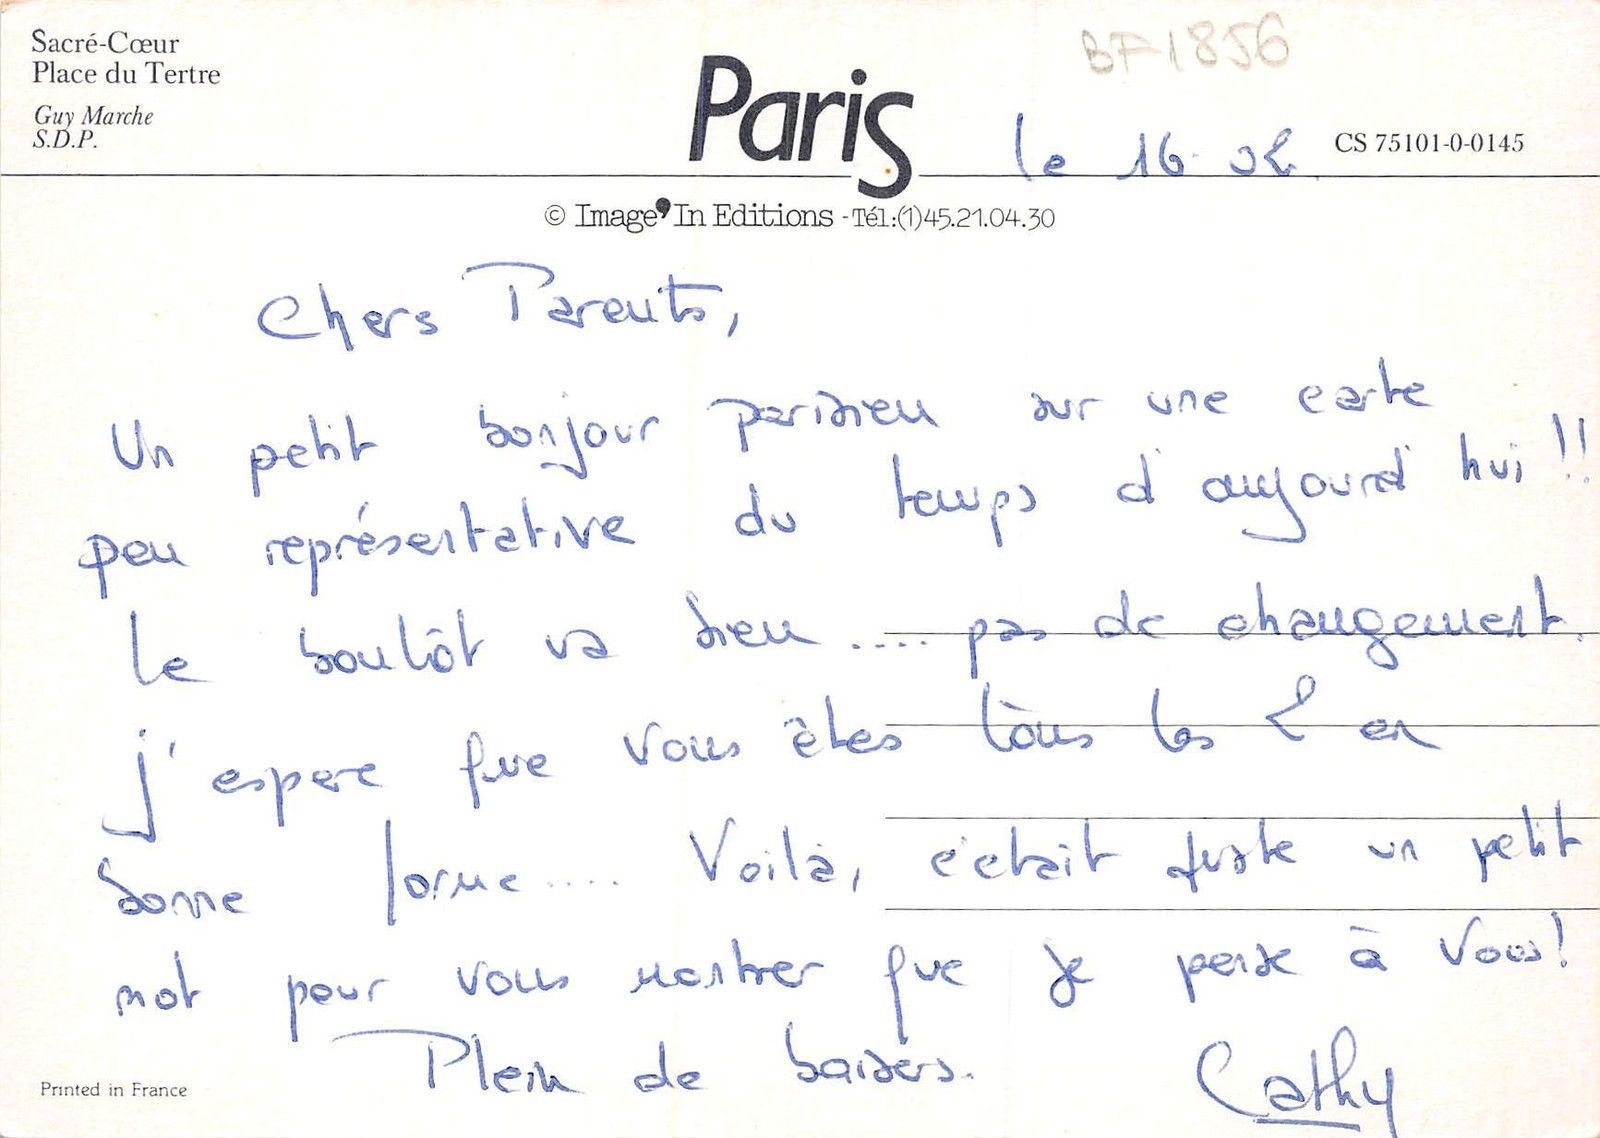 Sacré-Cœur
Place du Tertre
Guy Marche
S.D.P.
BF1856
Paris
le 16 02.
CS 75101-0-0145
© Image'In Editions - Tél:(1)45.21.04.30
Chers Parents,
Un petit bonjour parisien sur une carte
peu représentative du temps d'aujourd'hui !!
Le boulôt va bien .... pas de changement.
J'espere que vous êtes tous les 2 en
bonne forme .... Voilà, c'était juste un petit
mot pour vous montrer que je pense à vous!
Plein de baisers.
Cathy
Printed in France